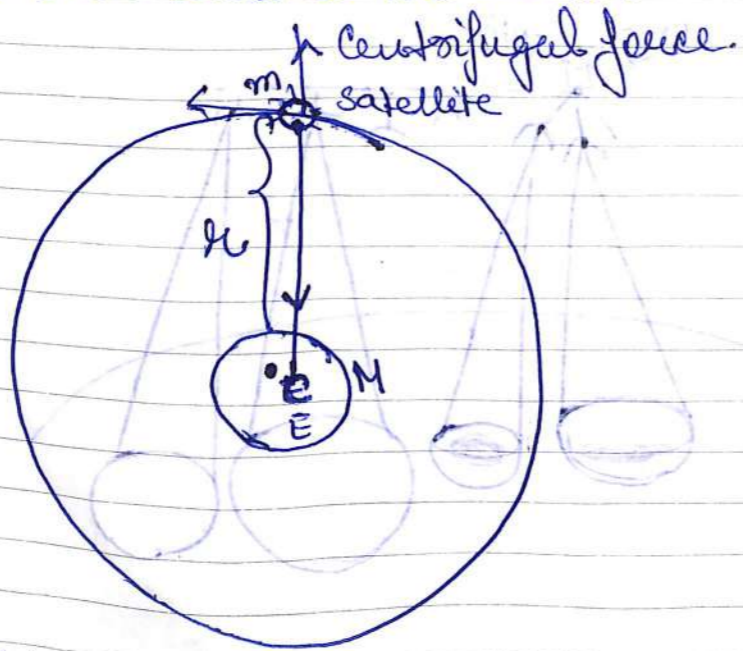 Centrifugal force.
m
satellite
r
M
E
E